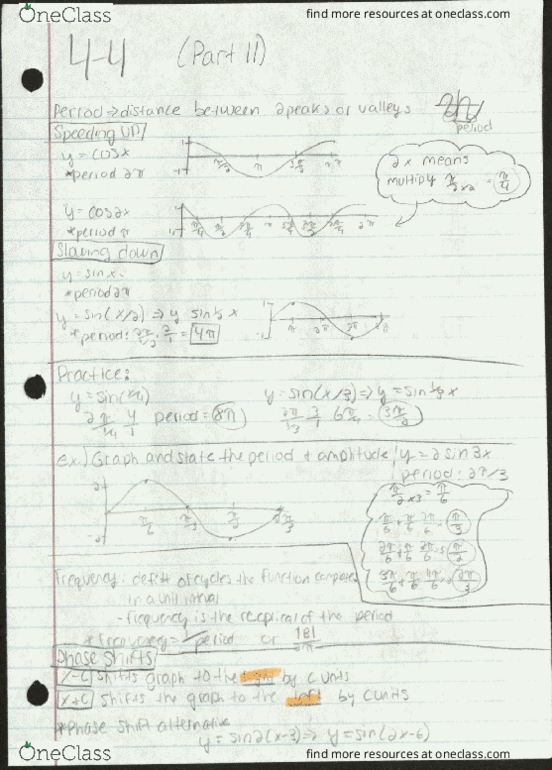 OneClass
find more resources at oneclass.com
4-4 (Part II)
Period → distance between 2 peaks or valleys
period
Speeding UP
y = cosx
*period 2π
2x means
multiply π/2×2 = π/4
y = cos2x
*period π
Slowing down
y = sinx
*period 2π
y = sin(x/2) ⇒ y sin 1/2 x
*period: 2π/1/2 · 2/1 = 4π
Practice:
y = sin(x/4) y = sin(x/3) ⇒ y = sin 1/3 x
2π/1/4 4/1 period = 8π
ex.) Graph and state the period + amplitude y = 2 sin 3x
period: 2π/3
π/2×3 = π/6
Frequency: def: # of cycles the function completes
in a unit interval
- frequency is the reciprical of the period
*frequency = 1/period or |B|/2π
Phase Shifts
x-c shifts graph to the by c units
x+c shifts the graph to the left by c units
*Phase shift alternative
y = sin2(x-3) ⇒ y = sin(2x-6)
OneClass
find more resources at oneclass.com